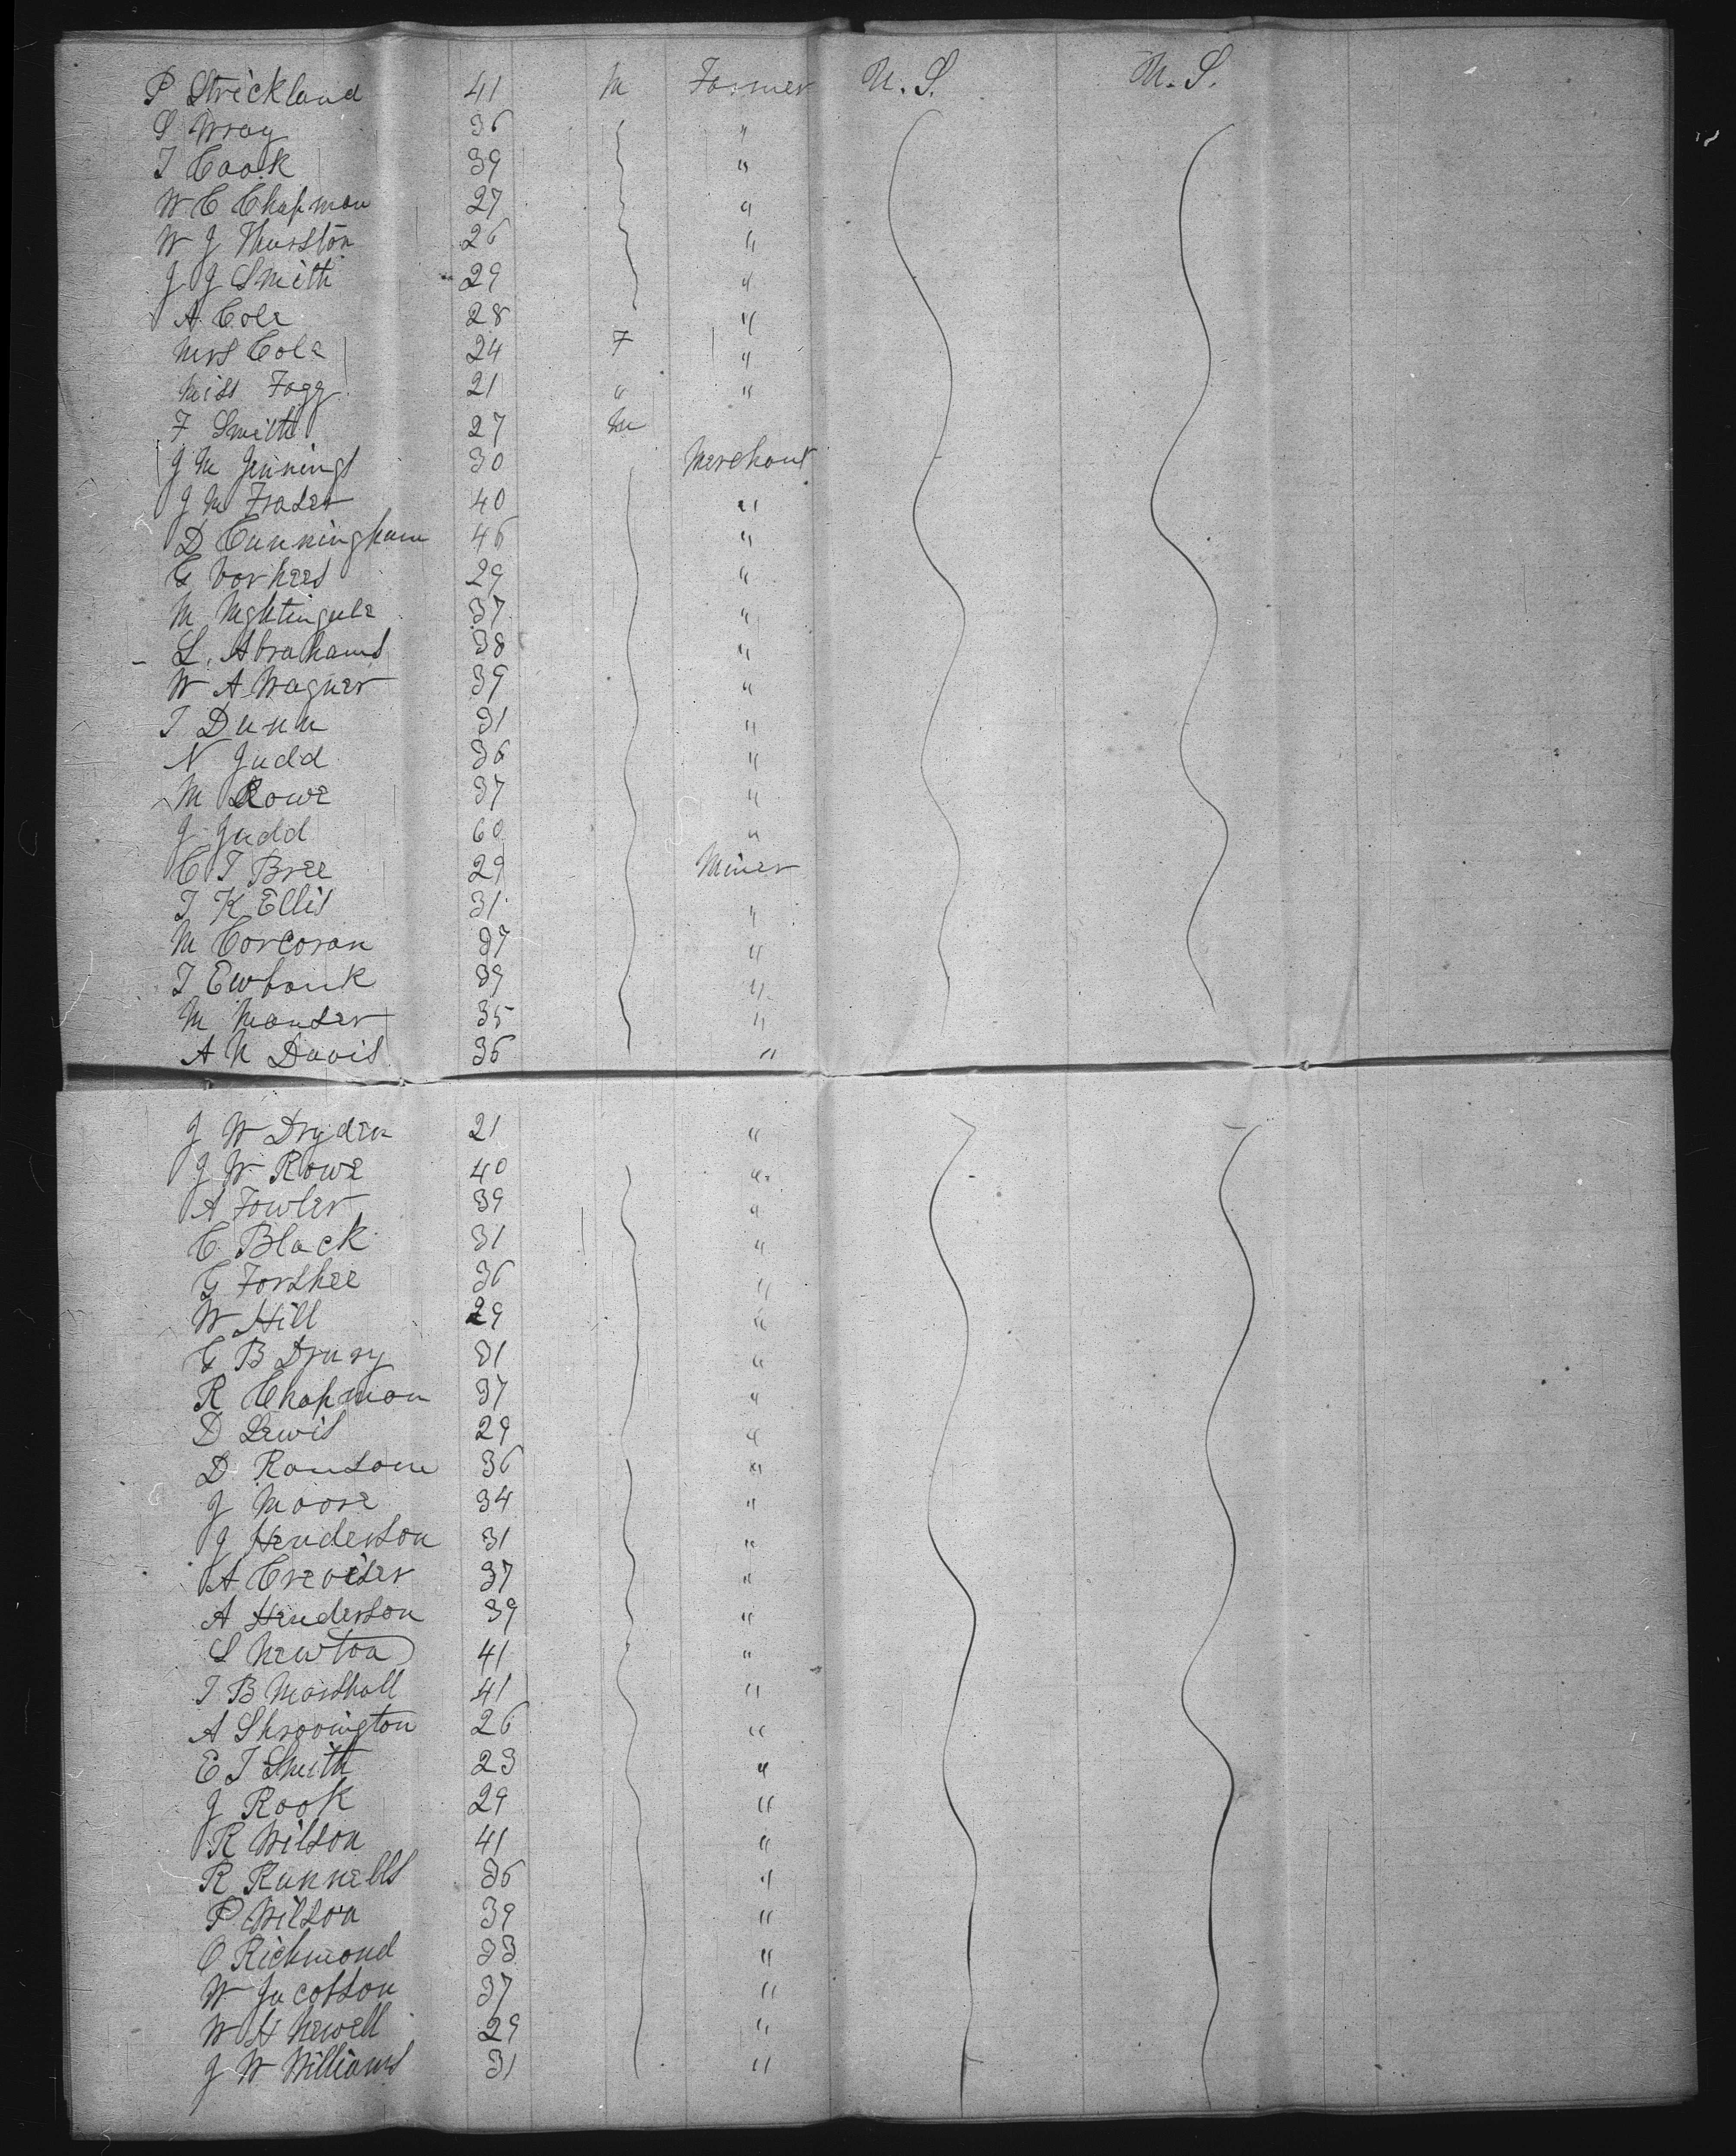 P Strickland 41 M Farmer U.S. U.S.
S Wray 36 "
T Cook 39 "
W C Chapman 27 "
W J Thurston 26 "
J J Smith 29 "
A Cole 28 "
Mrs Cole 24 F "
Miss Fogg 21 " "
F Smith 27 M
J M Jennings 30 Merchant
J M Frazer 40 "
D Cunningham 46 "
G Vorhees 29 "
M Nightingale 37 "
L. Abrahams 38 "
W A Wagner 39 "
T Dunn 31 "
N Judd 36 "
M Rowe 37 "
J Judd 60 "
C T Bree 29 Miner
T K Ellis 31 "
M Corcoran 37 "
T Ewbank 39 "
M Manser 35 "
A N Davis 36 "
J W Dryden 21 "
J W Rowe 40 "
A Fowler 39 "
C Black 31 "
G Forshee 36 "
W Hill 29 "
G B Drury 31 "
R Chapman 37 "
D Lewis 29 "
D Ransom 36 "
J Moore 34 "
J Henderson 31 "
A 37 "
A Henderson 39 "
S Newton 41 "
T B Marshall 41 "
A 26 "
E T Smith 23 "
J Rook 29 "
R Wilson 41 "
R Runnells 36 "
P Wilson 39 "
O Richmond 33 "
W Jacobson 37 "
W H Newell 29 "
J W Williams 31 "